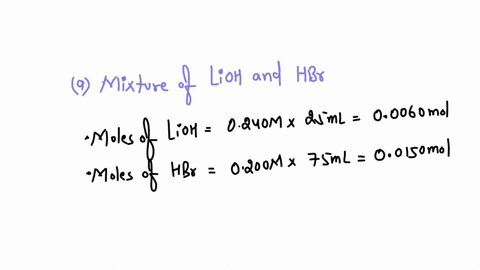 (a) Mixture of LiOH and HBr
• Moles of LiOH = 0.240M × 25mL = 0.0060 mol
• Moles of HBr = 0.200M × 75mL = 0.0150 mol